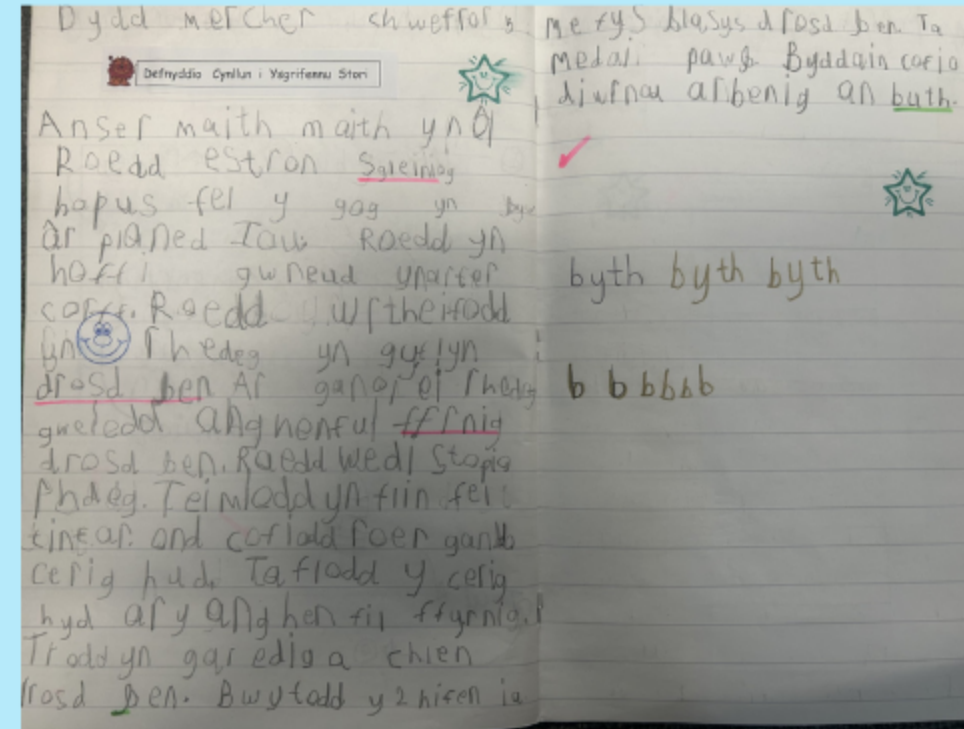 Dydd mercher chweffror
Defnyddio Cynllun i Ysgrifennu Stori
Anser maith maith yn ôl
Roedd estron
hapus fel y gog yn
ar planed Iau. Roedd yn
hoffi gwneud ymarfer
corff. Roedd wrtheifodd
yn rhedeg yn gyflyn
drosd ben Ar ganol ei
gweledd anghenful ffrnig
drosd ben. Raedd wedi stopio
rhdeg. Teimlodd yn flin fel
tincar. ond cofiodd foer ganddo
cerig hud. Taflodd y cerig
hyd ar y anghenfil ffyrnig.
Trodd yn garedig a chlen
drosd ben. Bwytodd y 2 hifen ia
mefys blasys drosd ben. Ta
medal i pawb. Byddain cofio
diwrnau arbenig an buth.
byth byth byth
b b b b b b